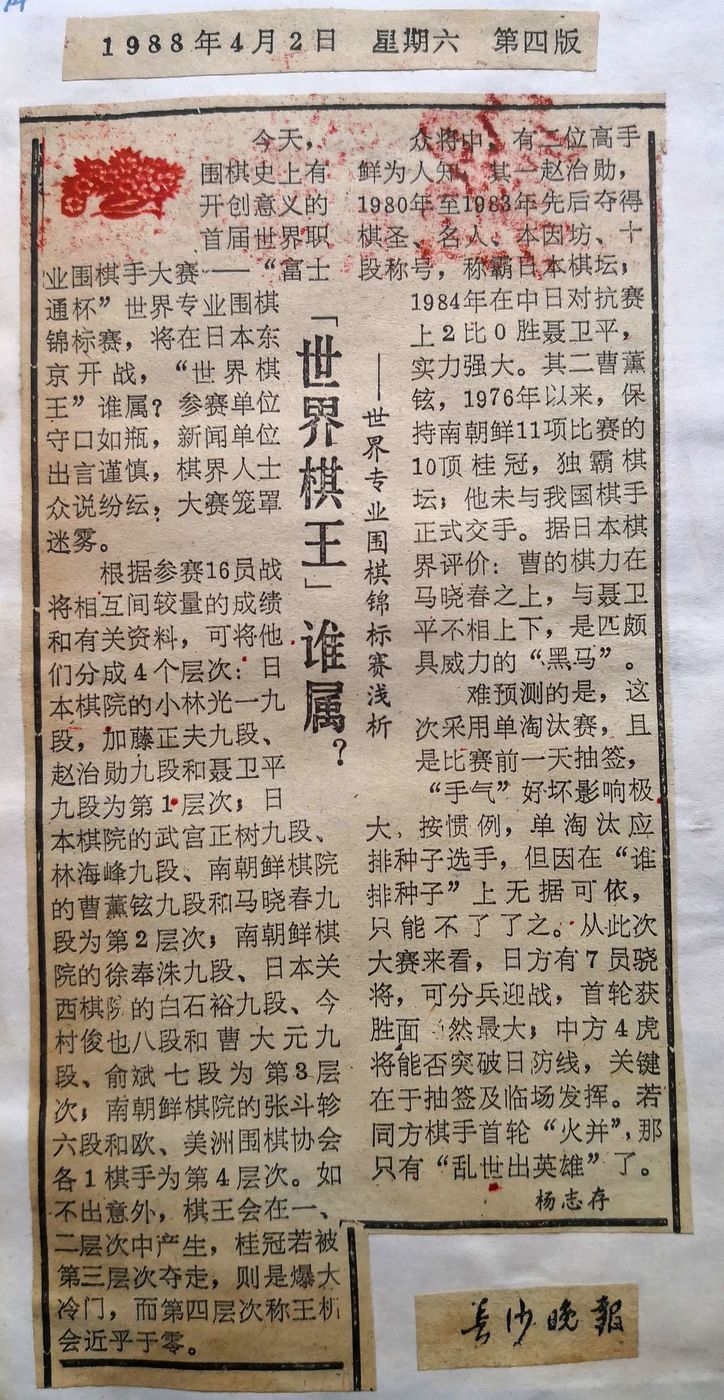 1988年4月2日 星期六 第四版
「世界棋王」谁属？
——世界专业围棋锦标赛浅析
今天，
围棋史上有
开创意义的
首届世界职
业围棋手大赛——“富士
通杯”世界专业围棋
锦标赛，将在日本东
京开战，“世界棋
王”谁属？参赛单位
守口如瓶，新闻单位
出言谨慎，棋界人士
众说纷纭，大赛笼罩
迷雾。
根据参赛16员战
将相互间较量的成绩
和有关资料，可将他
们分成4个层次：日
本棋院的小林光一九
段，加藤正夫九段、
赵治勋九段和聂卫平
九段为第1层次；日
本棋院的武宫正树九段、
林海峰九段、南朝鲜棋院
的曹薰铉九段和马晓春九
段为第2层次；南朝鲜棋
院的徐奉洙九段、日本关
西棋院的白石裕九段、今
村俊也八段和曹大元九
段、俞斌七段为第3层
次；南朝鲜棋院的张斗轸
六段和欧、美洲围棋协会
各1棋手为第4层次。如
不出意外，棋王会在一、
二层次中产生，桂冠若被
第三层次夺走，则是爆大
冷门，而第四层次称王机
会近乎于零。
众将中，有二位高手
鲜为人知，其一赵治勋，
1980年至1983年先后夺得
棋圣、名人、本因坊、十
段称号，称霸日本棋坛；
1984年在中日对抗赛
上2比0胜聂卫平，
实力强大。其二曹薰
铉，1976年以来，保
持南朝鲜11项比赛的
10顶桂冠，独霸棋
坛；他未与我国棋手
正式交手。据日本棋
界评价：曹的棋力在
马晓春之上，与聂卫
平不相上下，是匹颇
具威力的“黑马”。
难预测的是，这
次采用单淘汰赛，且
是比赛前一天抽签，
“手气”好坏影响极
大，按惯例，单淘汰应
排种子选手，但因在“谁
排种子”上无据可依，
只能不了了之。从此次
大赛来看，日方有7员骁
将，可分兵迎战，首轮获
胜面 然最大；中方4虎
将能否突破日防线，关键
在于抽签及临场发挥。若
同方棋手首轮“火并”，那
只有“乱世出英雄”了。
杨志存
长沙晚报